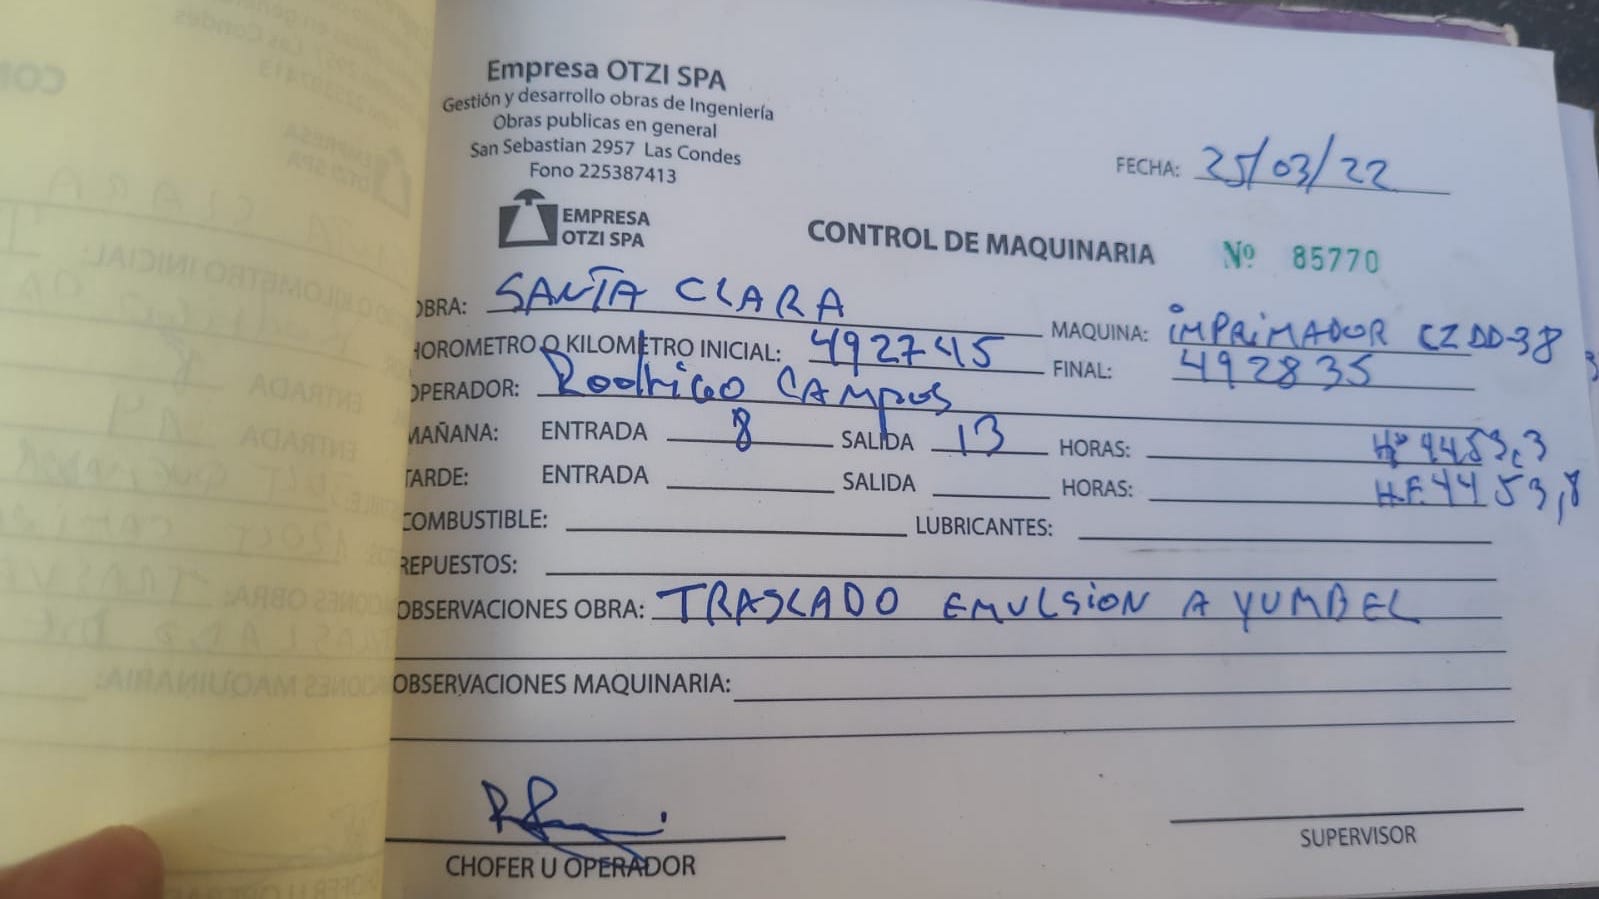 Empresa OTZI SPA
Gestión y desarrollo obras de Ingeniería
Obras publicas en general
San Sebastian 2957 Las Condes
Fono 225387413
FECHA: 25/03/22
EMPRESA
OTZI SPA
CONTROL DE MAQUINARIA Nº 85770
OBRA: SANTA CLARA MAQUINA: IMPRIMADOR CZDD-38
HOROMETRO O KILOMETRO INICIAL: 492745 FINAL: 492835
OPERADOR: Rodrigo CAMPOS
MAÑANA: ENTRADA 8 SALIDA 13 HORAS: 4453,3
TARDE: ENTRADA SALIDA HORAS: H.F. 4453,8
COMBUSTIBLE: LUBRICANTES:
REPUESTOS:
OBSERVACIONES OBRA: TRASLADO EMULSION A YUMBEL
OBSERVACIONES MAQUINARIA:
CHOFER U OPERADOR
SUPERVISOR